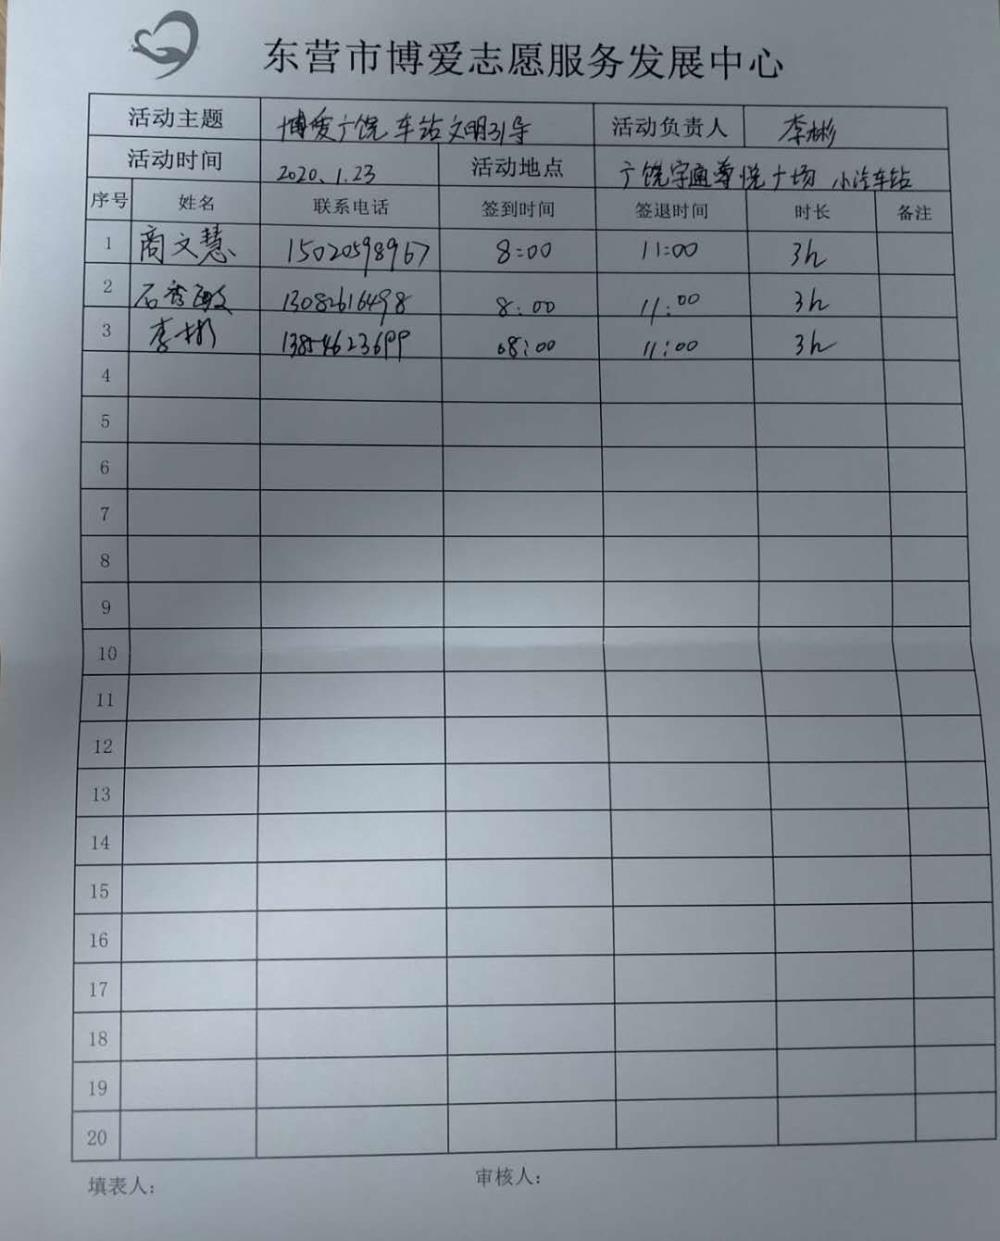 东营市博爱志愿服务发展中心
活动主题 博爱广饶车站文明引导 活动负责人 李彬
活动时间 2020.1.23 活动地点 广饶宇通尊悦广场 小汽车站
序号 姓名 联系电话 签到时间 签退时间 时长 备注
1 商文慧 15020598967 8:00 11:00 3h
2 石秀敏 13082616498 8:00 11:00 3h
3 李彬 13854623699 08:00 11:00 3h
4
5
6
7
8
9
10
11
12
13
14
15
16
17
18
19
20
填表人: 审核人: